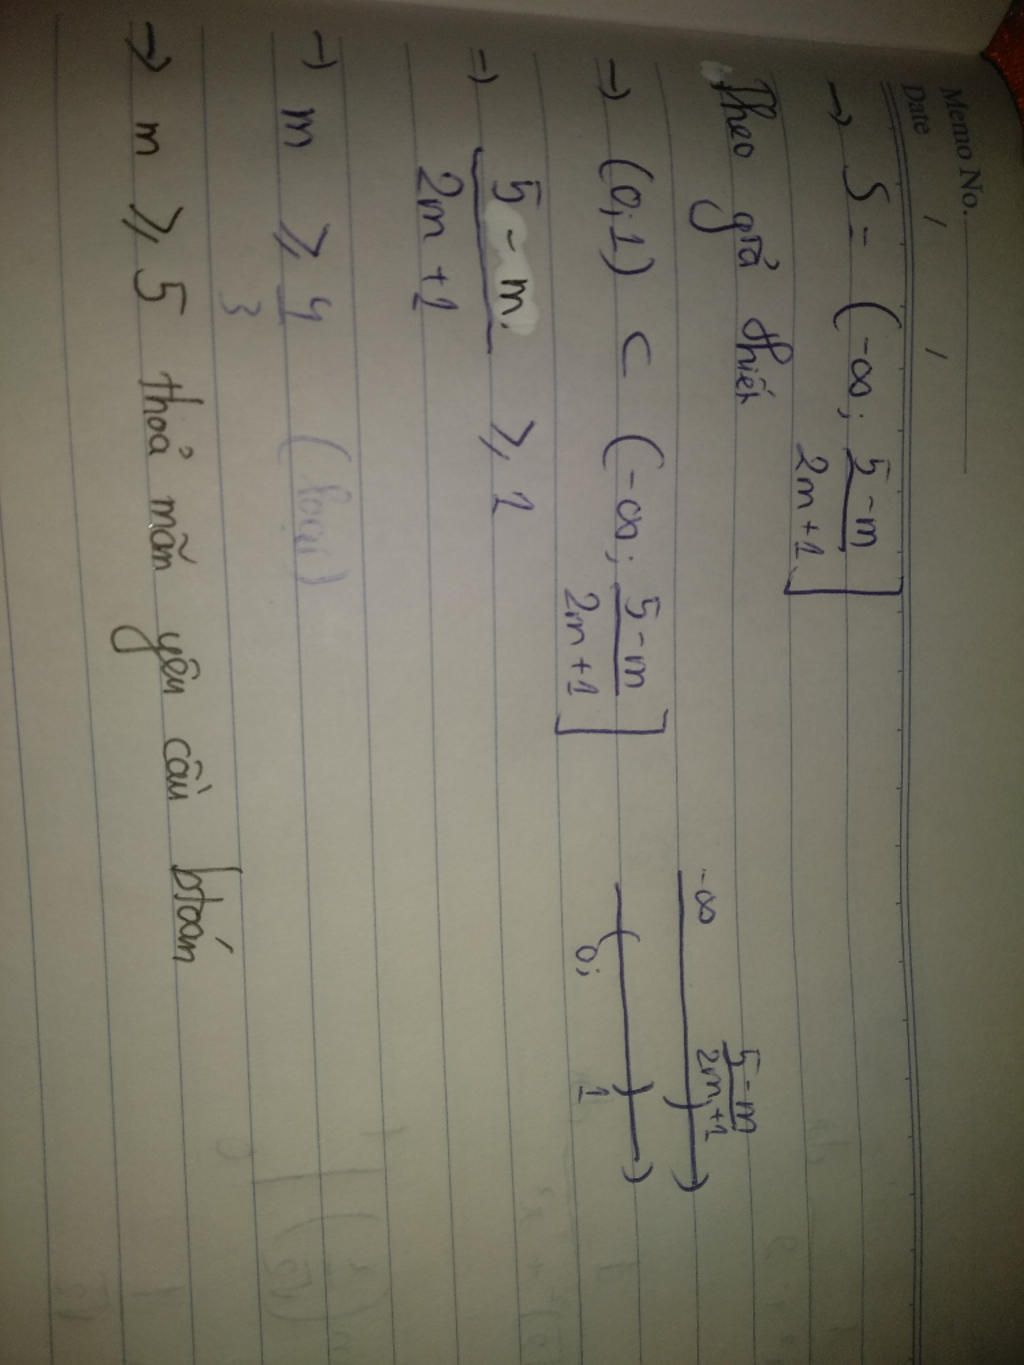 Memo No.
Date / /
→ S = (-∞; \frac{5-m}{2m+1}]
Theo giả thiết
→ (0;1) ⊂ (-∞; \frac{5-m}{2m+1}]
-∞ \frac{5-m}{2m+1}
0; 1
⇒ \frac{5-m}{2m+1} ≥ 1
→ m ≥ \frac{4}{3} (loại)
→ m ≥ 5 thoả mãn yêu cầu btoán